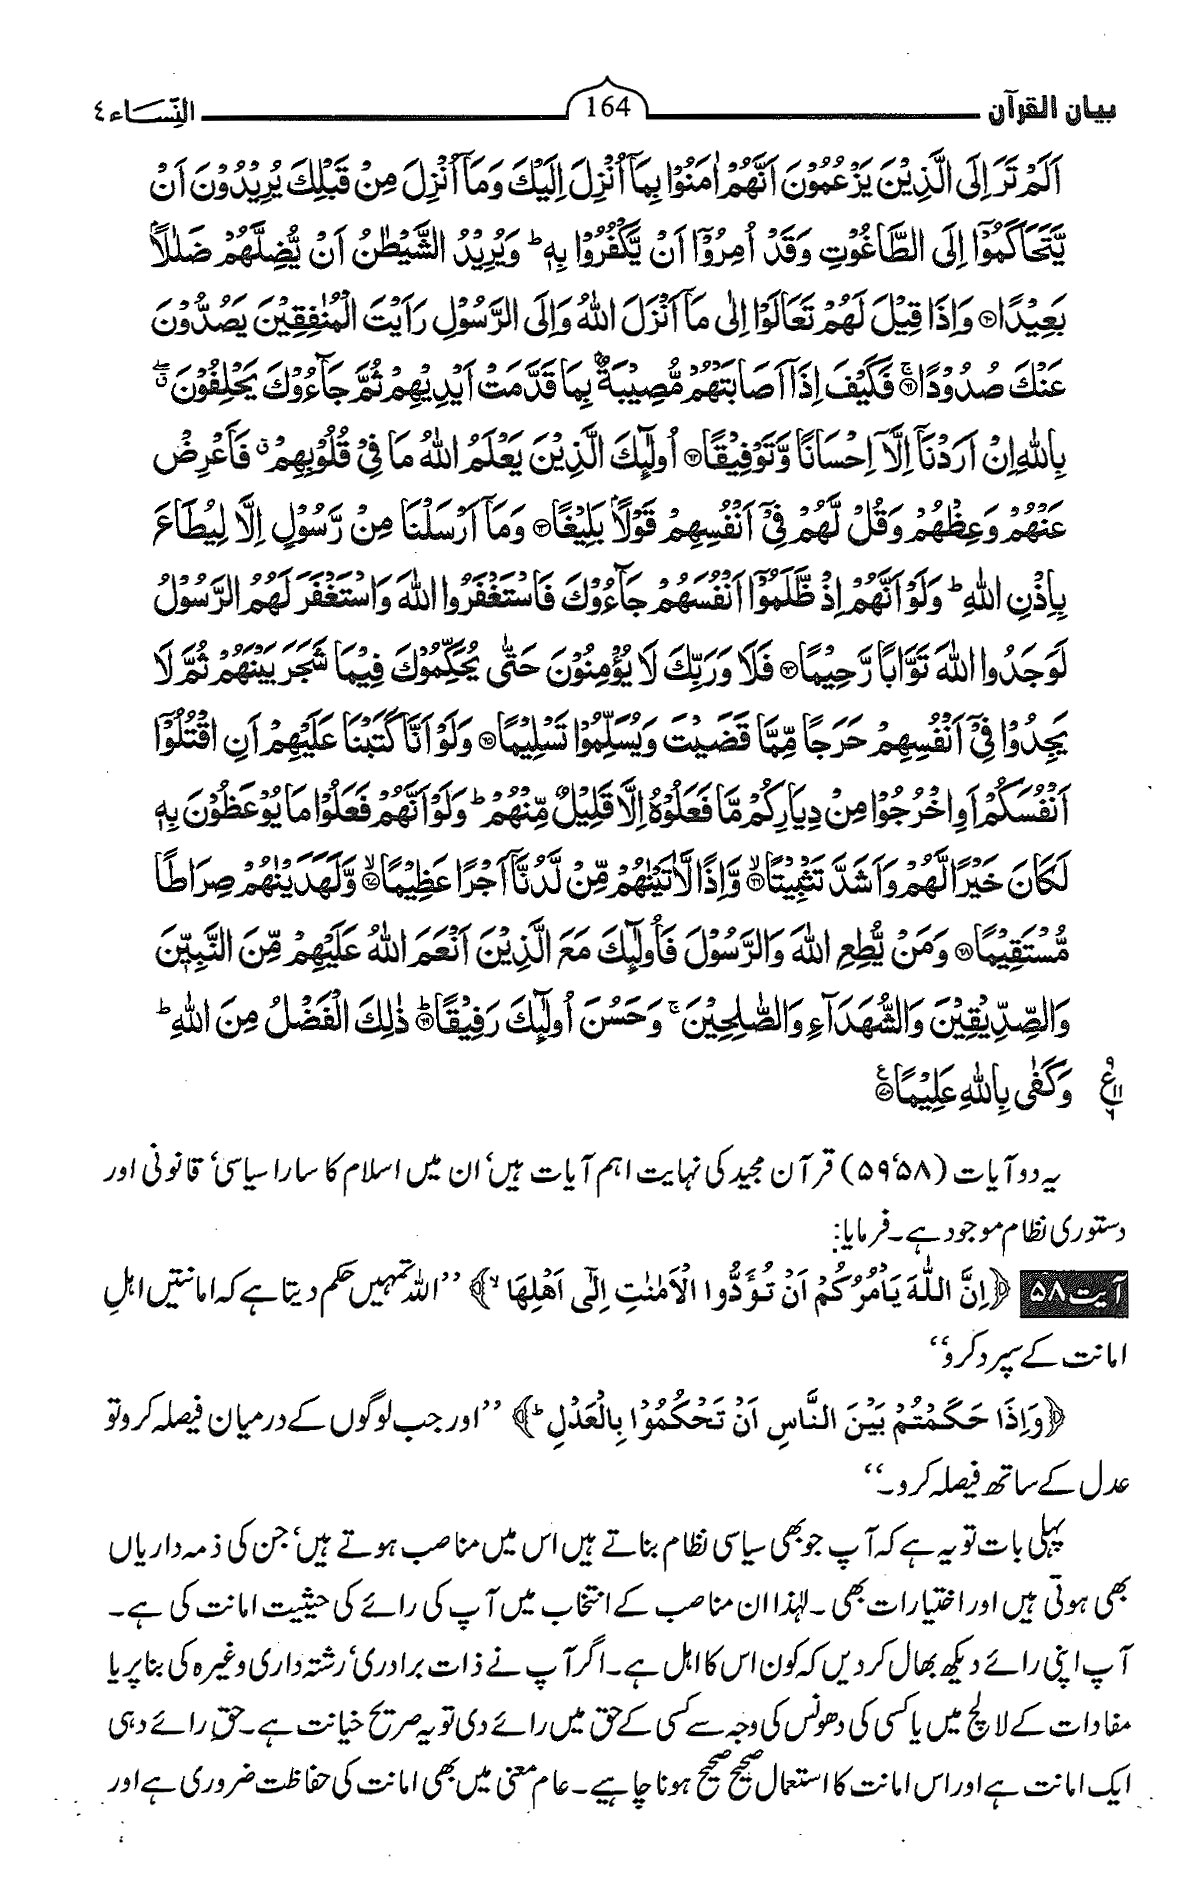 بیان القرآن 164 النِّسَاء ٤
اَلَمْ تَرَ اِلَی الَّذِیْنَ یَزْعُمُوْنَ اَنَّهُمْ اٰمَنُوْا بِمَاۤ اُنْزِلَ اِلَیْكَ وَمَاۤ اُنْزِلَ مِنْ قَبْلِكَ یُرِیْدُوْنَ اَنْ
یَّتَحَاكَمُوْۤا اِلَی الطَّاغُوْتِ وَقَدْ اُمِرُوْۤا اَنْ یَّكْفُرُوْا بِهٖ ؕ وَیُرِیْدُ الشَّیْطٰنُ اَنْ یُّضِلَّهُمْ ضَلٰلًاۢ
بَعِیْدًا ۝۶۰ وَاِذَا قِیْلَ لَهُمْ تَعَالَوْا اِلٰی مَاۤ اَنْزَلَ اللّٰهُ وَاِلَی الرَّسُوْلِ رَاَیْتَ الْمُنٰفِقِیْنَ یَصُدُّوْنَ
عَنْكَ صُدُوْدًا ۝۶۱ ۚ فَكَیْفَ اِذَاۤ اَصَابَتْهُمْ مُّصِیْبَةٌۢ بِمَا قَدَّمَتْ اَیْدِیْهِمْ ثُمَّ جَآءُوْكَ یَحْلِفُوْنَ ۖۗ
بِاللّٰهِ اِنْ اَرَدْنَاۤ اِلَّاۤ اِحْسَانًا وَّتَوْفِیْقًا ۝۶۲ اُولٰٓئِكَ الَّذِیْنَ یَعْلَمُ اللّٰهُ مَا فِیْ قُلُوْبِهِمْ ۗ فَاَعْرِضْ
عَنْهُمْ وَعِظْهُمْ وَقُلْ لَّهُمْ فِیْۤ اَنْفُسِهِمْ قَوْلًاۢ بَلِیْغًا ۝۶۳ وَمَاۤ اَرْسَلْنَا مِنْ رَّسُوْلٍ اِلَّا لِیُطَاعَ
بِاِذْنِ اللّٰهِ ؕ وَلَوْ اَنَّهُمْ اِذْ ظَّلَمُوْۤا اَنْفُسَهُمْ جَآءُوْكَ فَاسْتَغْفَرُوا اللّٰهَ وَاسْتَغْفَرَ لَهُمُ الرَّسُوْلُ
لَوَجَدُوا اللّٰهَ تَوَّابًا رَّحِیْمًا ۝۶۴ فَلَا وَرَبِّكَ لَا یُؤْمِنُوْنَ حَتّٰی یُحَكِّمُوْكَ فِیْمَا شَجَرَ بَیْنَهُمْ ثُمَّ لَا
یَجِدُوْا فِیْۤ اَنْفُسِهِمْ حَرَجًا مِّمَّا قَضَیْتَ وَیُسَلِّمُوْا تَسْلِیْمًا ۝۶۵ وَلَوْ اَنَّا كَتَبْنَا عَلَیْهِمْ اَنِ اقْتُلُوْۤا
اَنْفُسَكُمْ اَوِ اخْرُجُوْا مِنْ دِیَارِكُمْ مَّا فَعَلُوْهُ اِلَّا قَلِیْلٌ مِّنْهُمْ ؕ وَلَوْ اَنَّهُمْ فَعَلُوْا مَا یُوْعَظُوْنَ بِهٖ
لَكَانَ خَیْرًا لَّهُمْ وَاَشَدَّ تَثْبِیْتًا ۝۶۶ ۙ وَّاِذًا لَّاٰتَیْنٰهُمْ مِّنْ لَّدُنَّاۤ اَجْرًا عَظِیْمًا ۝۶۷ ۙ وَّلَهَدَیْنٰهُمْ صِرَاطًا
مُّسْتَقِیْمًا ۝۶۸ وَمَنْ یُّطِعِ اللّٰهَ وَالرَّسُوْلَ فَاُولٰٓئِكَ مَعَ الَّذِیْنَ اَنْعَمَ اللّٰهُ عَلَیْهِمْ مِّنَ النَّبِیّٖنَ
وَالصِّدِّیْقِیْنَ وَالشُّهَدَآءِ وَالصّٰلِحِیْنَ ۚ وَحَسُنَ اُولٰٓئِكَ رَفِیْقًا ۝۶۹ ؕ ذٰلِكَ الْفَضْلُ مِنَ اللّٰهِ ؕ
وَكَفٰی بِاللّٰهِ عَلِیْمًا ۝۷۰ ۧ
یہ دو آیات (۵۸‘۵۹) قرآن مجید کی نہایت اہم آیات ہیں‘ ان میں اسلام کا سارا سیاسی‘ قانونی اور
دستوری نظام موجود ہے۔ فرمایا:
آیت ۵۸ ﴿اِنَّ اللّٰهَ یَاْمُرُكُمْ اَنْ تُؤَدُّوا الْاَمٰنٰتِ اِلٰٓی اَهْلِهَا ۙ﴾ ’’اللہ تمہیں حکم دیتا ہے کہ امانتیں اہلِ
امانت کے سپرد کرو‘‘
﴿وَاِذَا حَكَمْتُمْ بَیْنَ النَّاسِ اَنْ تَحْكُمُوْا بِالْعَدْلِ ؕ﴾ ’’اور جب لوگوں کے درمیان فیصلہ کرو تو
عدل کے ساتھ فیصلہ کرو۔‘‘
پہلی بات تو یہ ہے کہ آپ جو بھی سیاسی نظام بناتے ہیں اس میں مناصب ہوتے ہیں‘ جن کی ذمہ داریاں
بھی ہوتی ہیں اور اختیارات بھی ۔ لہٰذا ان مناصب کے انتخاب میں آپ کی رائے کی حیثیت امانت کی ہے۔
آپ اپنی رائے دیکھ بھال کر دیں کہ کون اس کا اہل ہے۔ اگر آپ نے ذات برادری‘ رشتہ داری وغیرہ کی بنا پر یا
مفادات کے لالچ میں یا کسی کی دھونس کی وجہ سے کسی کے حق میں رائے دی تو یہ صریح خیانت ہے۔ حقِ رائے دہی
ایک امانت ہے اور اس امانت کا استعمال صحیح صحیح ہونا چاہیے۔ عام معنی میں بھی امانت کی حفاظت ضروری ہے اور